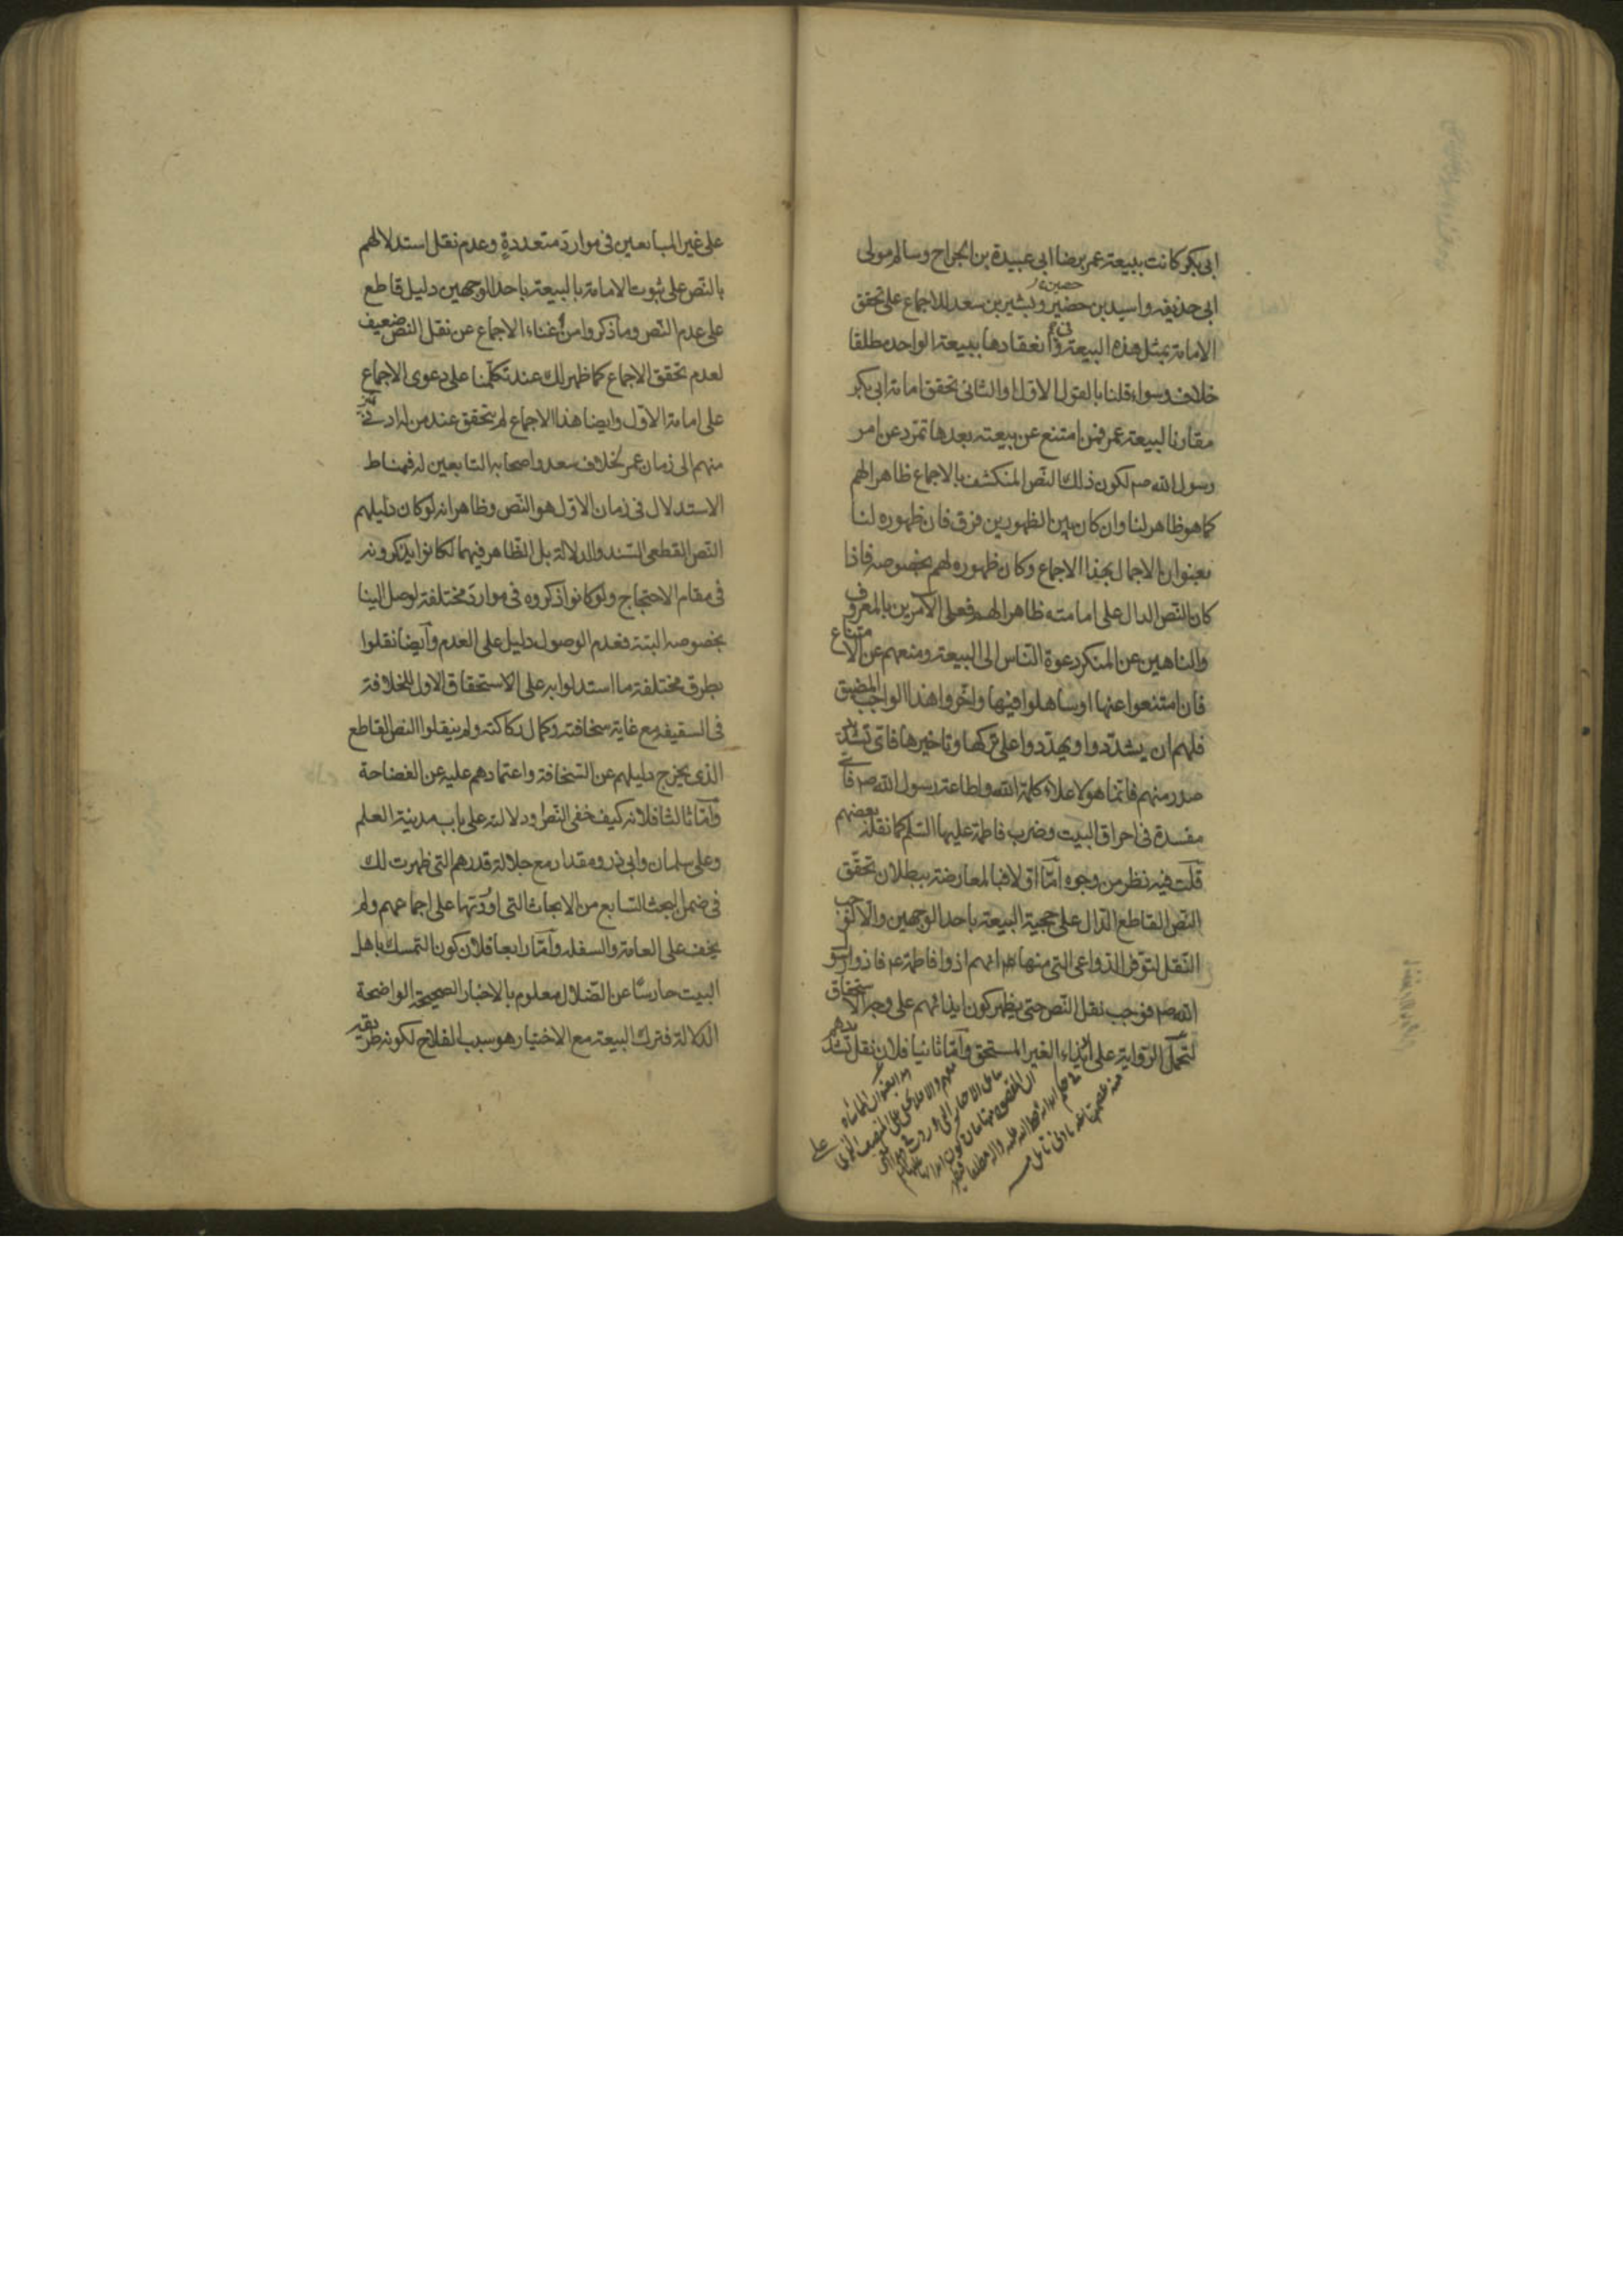 ابى بكر كانت ببيعة عمر برضا ابى عبيدة بن الجراح وسالم مولى
ابى حذيفه واسيد بن حضير وبشير بن سعد للاجماع على تحقق
الامامة بمثل هذه البيعة وفى انعقادها ببيعة الواحد مطلقا
خلاف وسواء قلنا بالقول الاول او الثانى تحقق امامة ابى بكر
مقارنا لبيعة عمر فمن امتنع عن بيعته بعدها تمرد عن امر
رسول الله صم لكون ذلك النّص المنكشف بالاجماع ظاهرا لهم
كما هو ظاهر لنا وان كان بين الظهورين فرق فان ظهوره لنا
بعنوان الاجمال بهذا الاجماع وكان ظهوره لهم بخصوصه فاذا
كان النّص الدال على امامته ظاهرا لهم فعلى الآمرين بالمعروف
والناهين عن المنكر دعوة النّاس الى البيعة ومنعهم عن الامتناع
فان امتنعوا عنها او ساهلوا فيها واخّروا هذا الواجب المضيق
فلهم ان يشدّدوا ويهدّدوا على تركها وتاخيرها فاىّ تشدّد
صدر منهم فانّما هو لاعلاء كلمة الله واطاعة رسول الله صم فاىّ
مفسدة فى احراق البيت وضرب فاطمة عليها السّلم كما نقله بعضهم
قلت فيه نظر من وجوه امّا اوّلا فبالمعارضة ببطلان تحقّق
النّص القاطع الدّال على حجية البيعة باحد الوجهين والّا لوجب
النّقل لتوّفر الدّواعى التى منها انهم اذوا فاطمة ع فاذوا رسول
الله صم فوجب نقل النّص حتى يظهر كون ايذائهم على وجه الاستحقاق
لتحمل الرّواية على ايذاء الغير المستحق وامّا ثانيا فلان نقل تشددهم
على
على غير المبايعين فى موارد متعددةٍ وعدم نقل استدلالهم
بالنّص على ثبوت الامامة بالبيعة باحد الوجهين دليل قاطع
على عدم النّص وما ذكروا من غناء الاجماع عن نقل النّص ضعيف
لعدم تحقق الاجماع كما ظهر لك عند تكلّمنا على دعوى الاجماع
على امامة الاوّل وايضا هذا الاجماع لم يتحقق عند من له ادنى تميز
منهم الى زمان عمر لخلاف سعد واصحابه التابعين له فمناط
الاستدلال فى زمان الاوّل هو النّص وظاهر انه لو كان دليلهم
النّص القطعى السّند والدلالة بل الظّاهر فيهما لكانوا يذكرونه
فى مقام الاحتجاج ولو كانوا ذكروه فى موارد مختلفة لوصل الينا
بخصوصه البتة فعدم الوصول دليل على العدم وايضا نقلوا
بطرق مختلفة ما استدلوا به على الاستحقاق الاول للخلافة
فى السقيفه مع غاية سخافته وكمال ركاكته ولم ينقلوا النص القاطع
الذى يخرج دليلهم عن السّخافة واعتمادهم عليه عن الفضاحة
وامّا ثالثا فلانه كيف خفى النّص ودلالته على باب مدينة العلم
وعلى سلمان وابى ذر ومقداد مع جلالة قدرهم التى ظهرت لك
فى ضمن البحث السّابع من الابحاث التى اوردتها على اجماعهم ولم
يخف على العامة والسفله وامّا رابعا فلان كون التمسك باهل
البيت حارسًا عن الضّلال معلوم بالاخبار الصحيحة الواضحة
الدّلالة فترك البيعة مع الاختيار هو سبب الفلاح لكونه طريقة